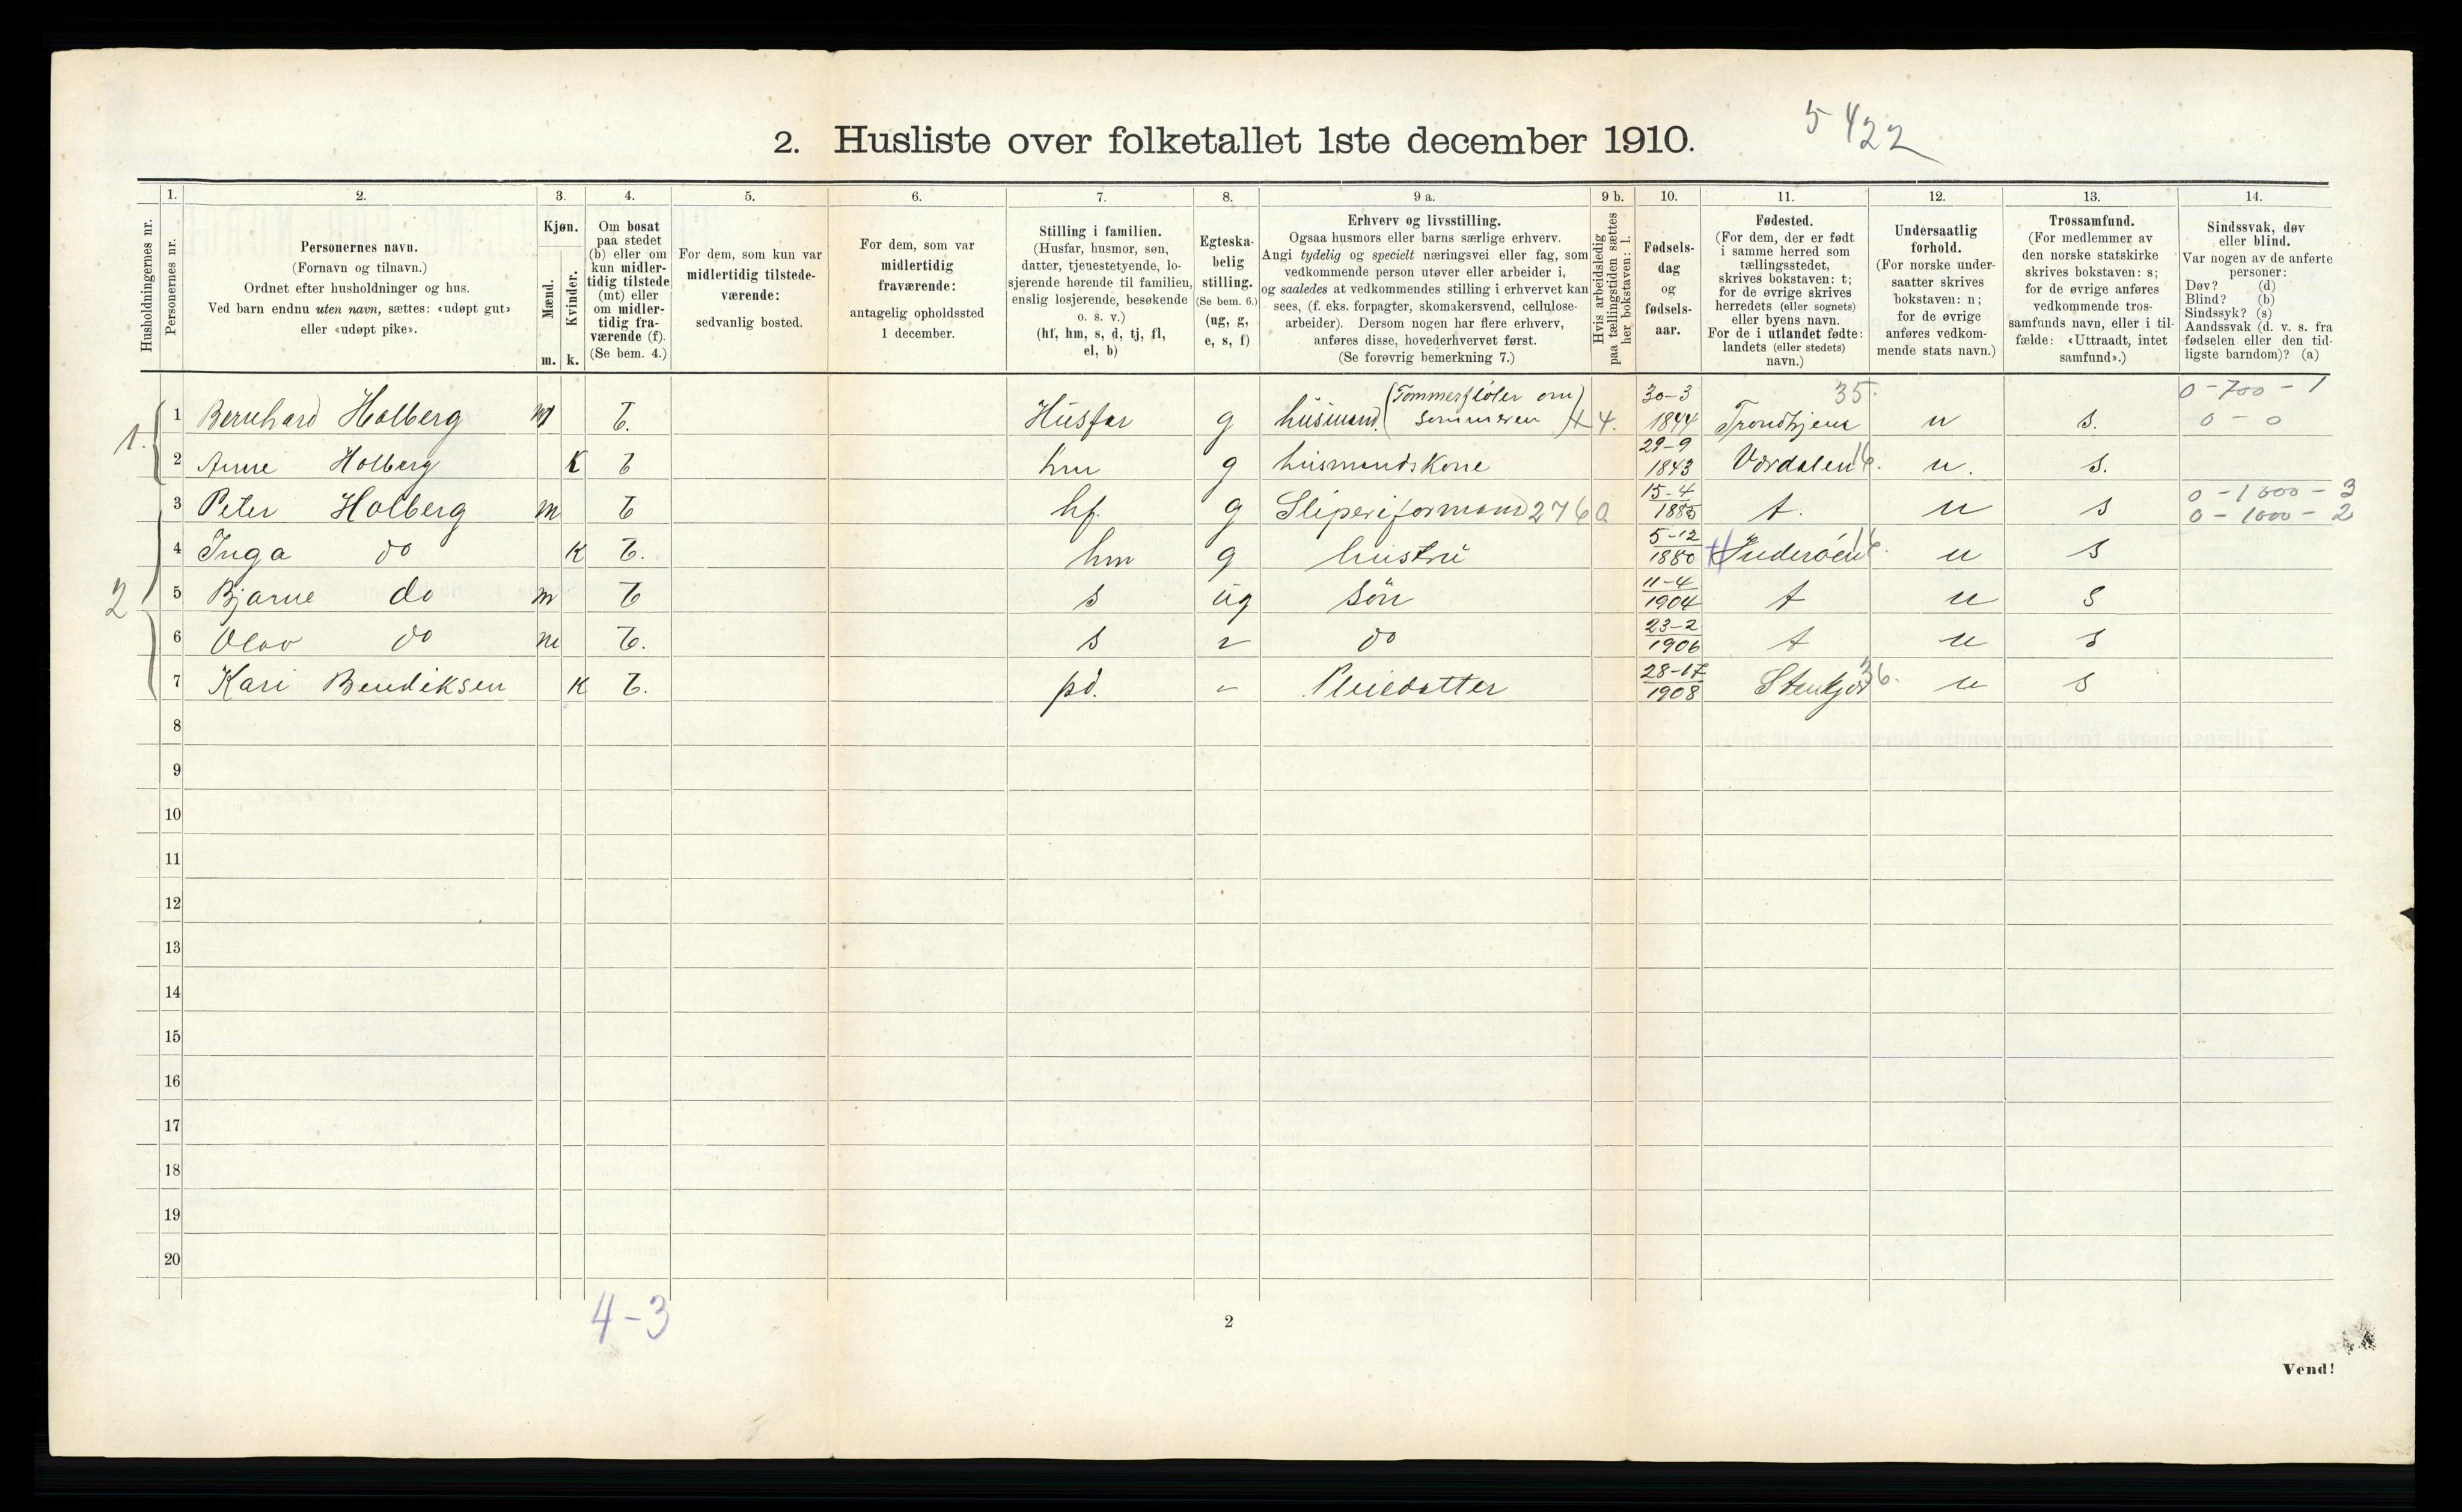 2. Husliste over folketallet 1ste december 1910.
5 422
Husholdningernes nr.
1. Personernes nr.
2. Personernes navn.
(Fornavn og tilnavn.)
Ordnet efter husholdninger og hus.
Ved barn endnu uten navn, sættes: «udøpt gut»
eller «udøpt pike».
3. Kjøn.
Mænd. m.
Kvinder. k.
4. Om bosat
paa stedet
(b) eller om
kun midler-
tidig tilstede
(mt) eller
om midler-
tidig fra-
værende (f).
(Se bem. 4.)
5. For dem, som kun var
midlertidig tilstede-
værende:
sedvanlig bosted.
6. For dem, som var
midlertidig
fraværende:
antagelig opholdssted
1 december.
7. Stilling i familien.
(Husfar, husmor, søn,
datter, tjenestetyende, lo-
sjerende hørende til familien,
enslig losjerende, besøkende
o. s. v.)
(hf, hm, s, d, tj, fl,
el, b)
8. Egteska-
belig
stilling.
(Se bem. 6.)
(ug, g,
e, s, f)
9 a. Erhverv og livsstilling.
Ogsaa husmors eller barns særlige erhverv.
Angi tydelig og specielt næringsvei eller fag, som
vedkommende person utøver eller arbeider i,
og saaledes at vedkommendes stilling i erhvervet kan
sees, (f. eks. forpagter, skomakersvend, cellulose-
arbeider). Dersom nogen har flere erhverv,
anføres disse, hovederhvervet først.
(Se forøvrig bemerkning 7.)
9 b. Hvis arbeidsledig
paa tællingstiden sættes
her bokstaven: l.
10. Fødsels-
dag
og
fødsels-
aar.
11. Fødested.
(For dem, der er født
i samme herred som
tællingsstedet,
skrives bokstaven: t;
for de øvrige skrives
herredets (eller sognets)
eller byens navn.
For de i utlandet fødte:
landets (eller stedets)
navn.)
12. Undersaatlig
forhold.
(For norske under-
saatter skrives
bokstaven: n;
for de øvrige
anføres vedkom-
mende stats navn.)
13. Trossamfund.
(For medlemmer av
den norske statskirke
skrives bokstaven: s;
for de øvrige anføres
vedkommende tros-
samfunds navn, eller i til-
fælde: «Uttraadt, intet
samfund».)
14. Sindssvak, døv
eller blind.
Var nogen av de anførte
personer:
Døv? (d)
Blind? (b)
Sindssyk? (s)
Aandssvak (d. v. s. fra
fødselen eller den tid-
ligste barndom)? (a)
(Tommerfløter om 30-3 35. 0-700-1
1. 1 Bernhard Holberg m b. Husfar g husmand. sommeren) 4. 1844 Trondhjem n s. 0-0
2 Anne Holberg K b hm g husmandskone 29-9 1843 Værdalen 16. n. s.
3 Peter Holberg m b hf. g Sliperiformand 2760 15-4 1885 t. n s 0-1000-3
0-1000-2
4 Inga do K b. hm g hustru 5-12 1880 Inderøen 16. n s
2 5 Bjarne do m b s ug Søn 11-4 1904 t n s
6 Olav do m b. s " do 23-2 1906 t n s
7 Kari Bendiksen K b. pd. " Pleiedatter 28-17 1908 Stenkjær 36. n s
8
9
10
11
12
13
14
15
16
17
18
19
20
4-3
2
Vend!